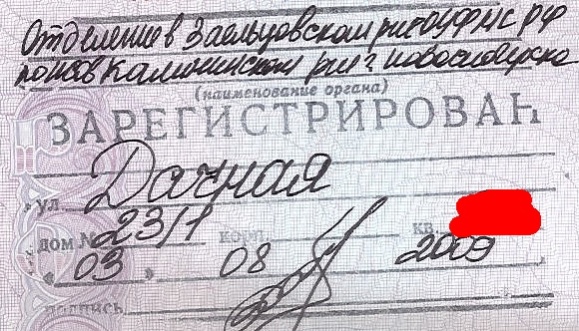 Отделение в Заельцовском р-не ОУФМС РФ
по НСО в Калининском р-не г. Новосибирска
(наименование органа)
ЗАРЕГИСТРИРОВАН
ул. Дачная
дом № 23/1 корп. кв.
" 03 " 08 2009
подпись